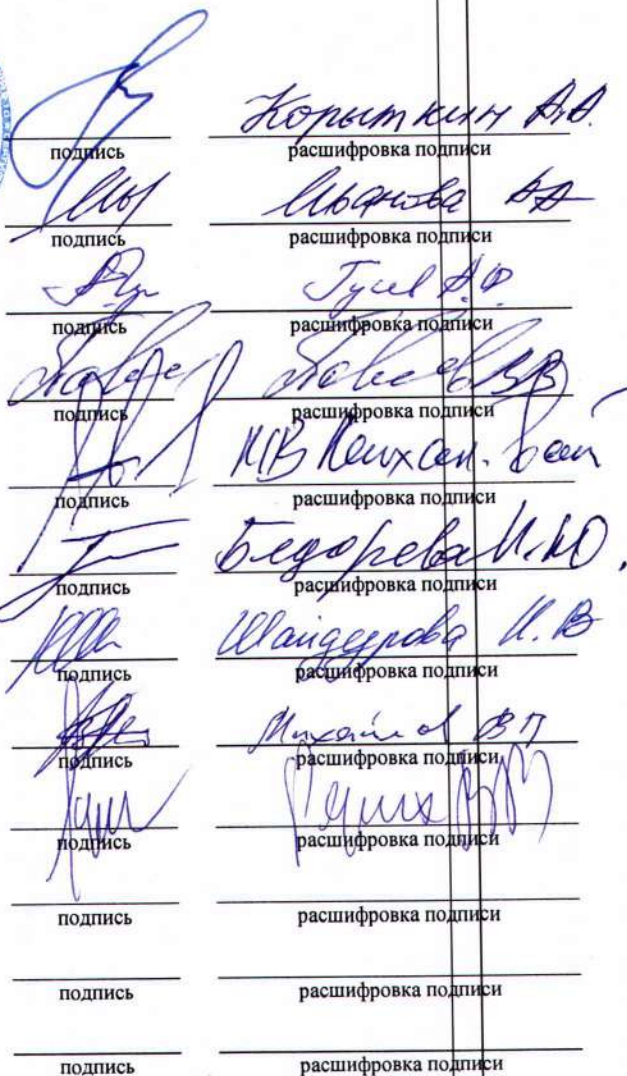 Корыткин А.А.
подпись расшифровка подписи
Иванова АА
подпись расшифровка подписи
Гусев А.Ф
подпись расшифровка подписи
ВВ
подпись расшифровка подписи
МВ
подпись расшифровка подписи
Бедорева И.Ю.
подпись расшифровка подписи
Шайдурова И.В
подпись расшифровка подписи
Михайлов ВП
подпись расшифровка подписи
подпись расшифровка подписи
подпись расшифровка подписи
подпись расшифровка подписи
подпись расшифровка подписи